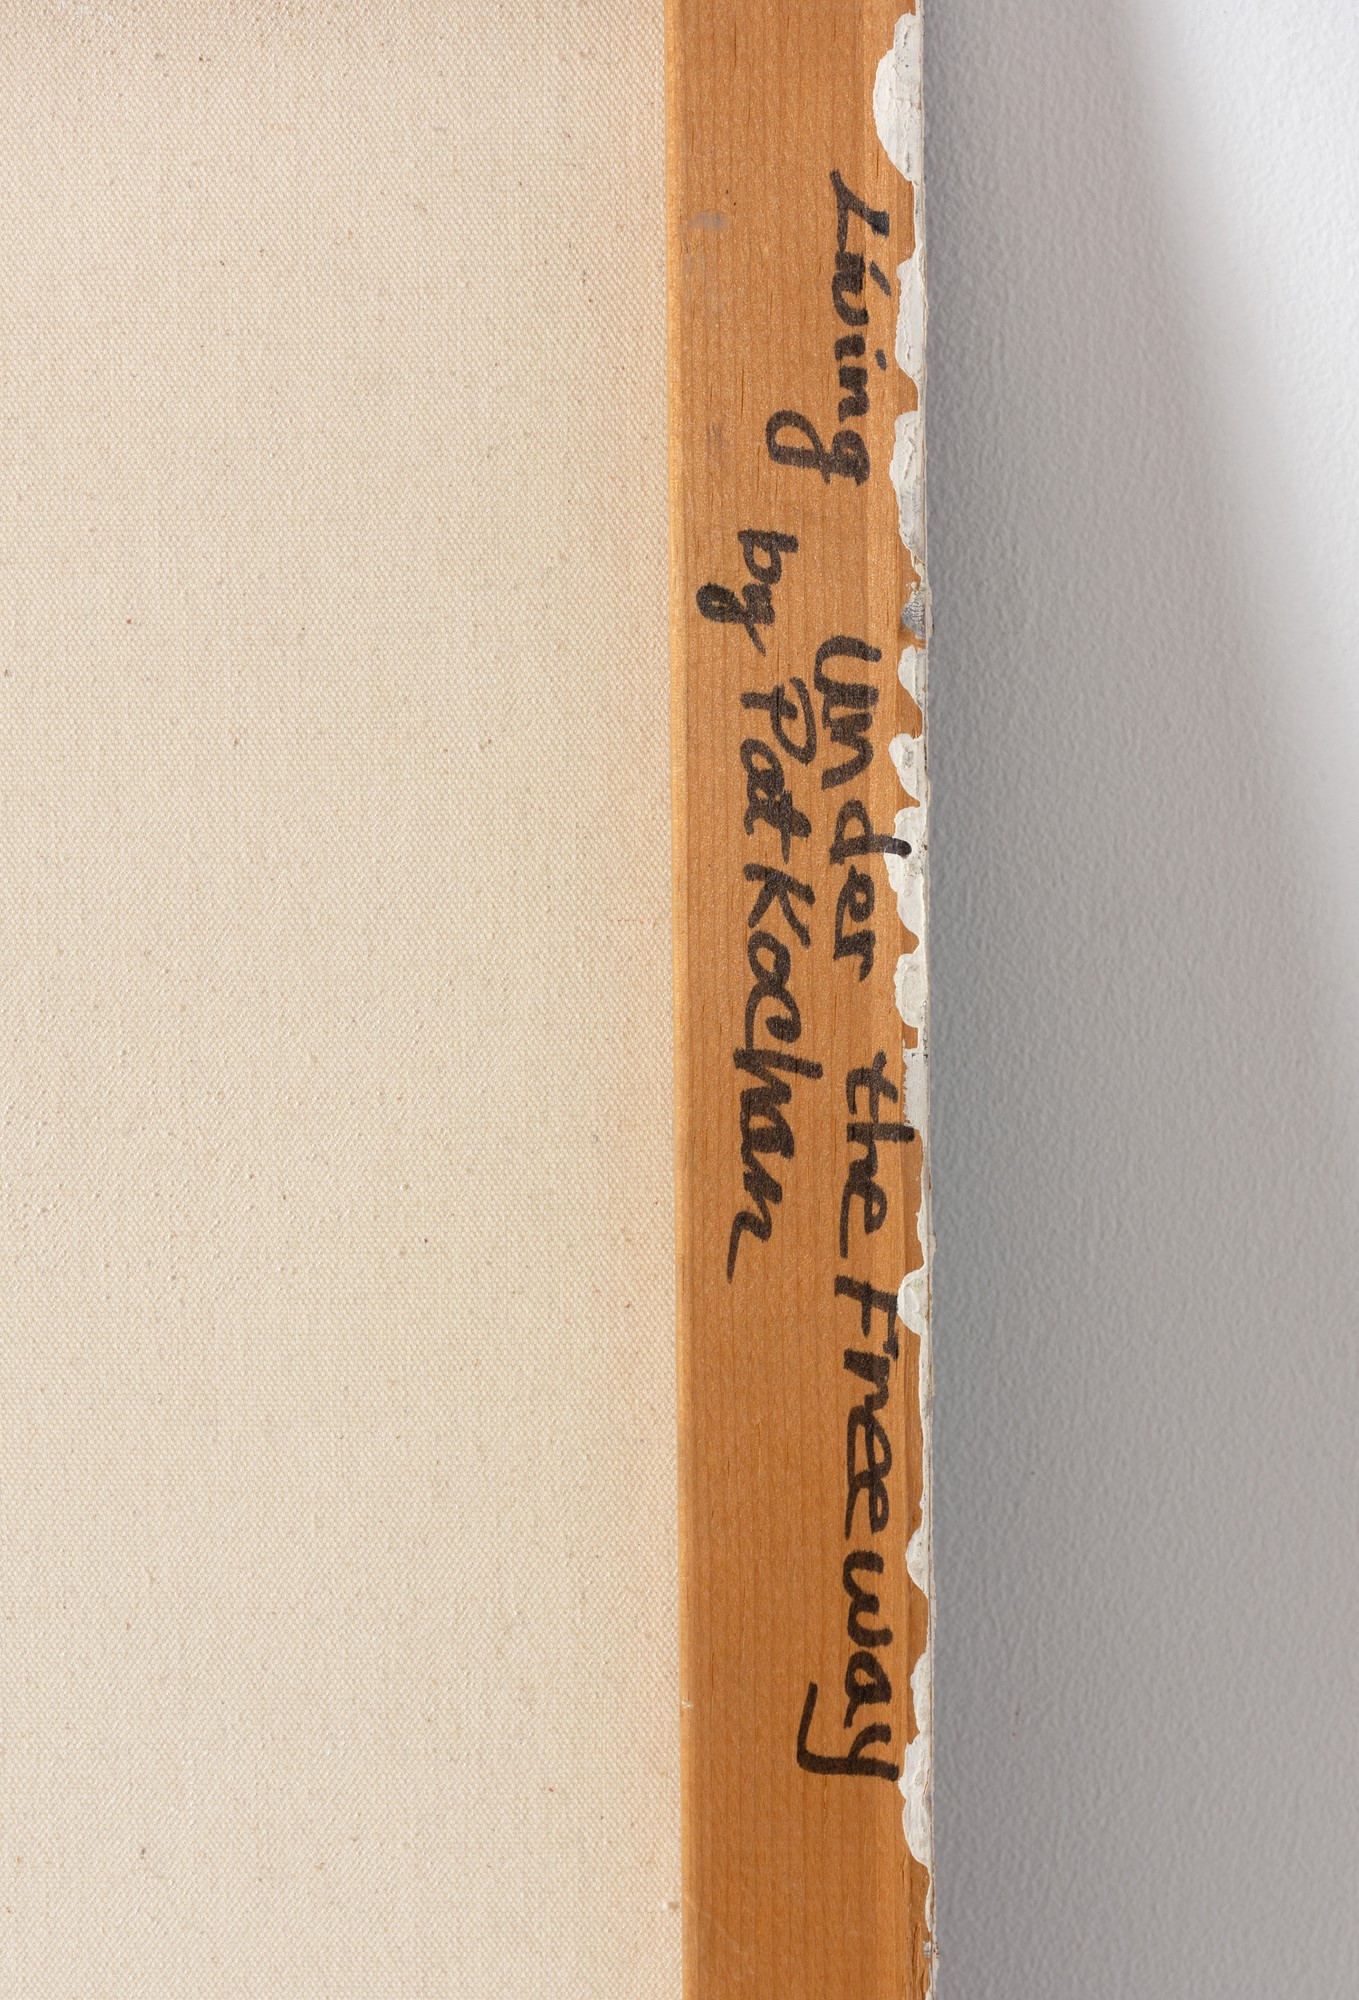 Living Under the Freeway
by Pat Kochan